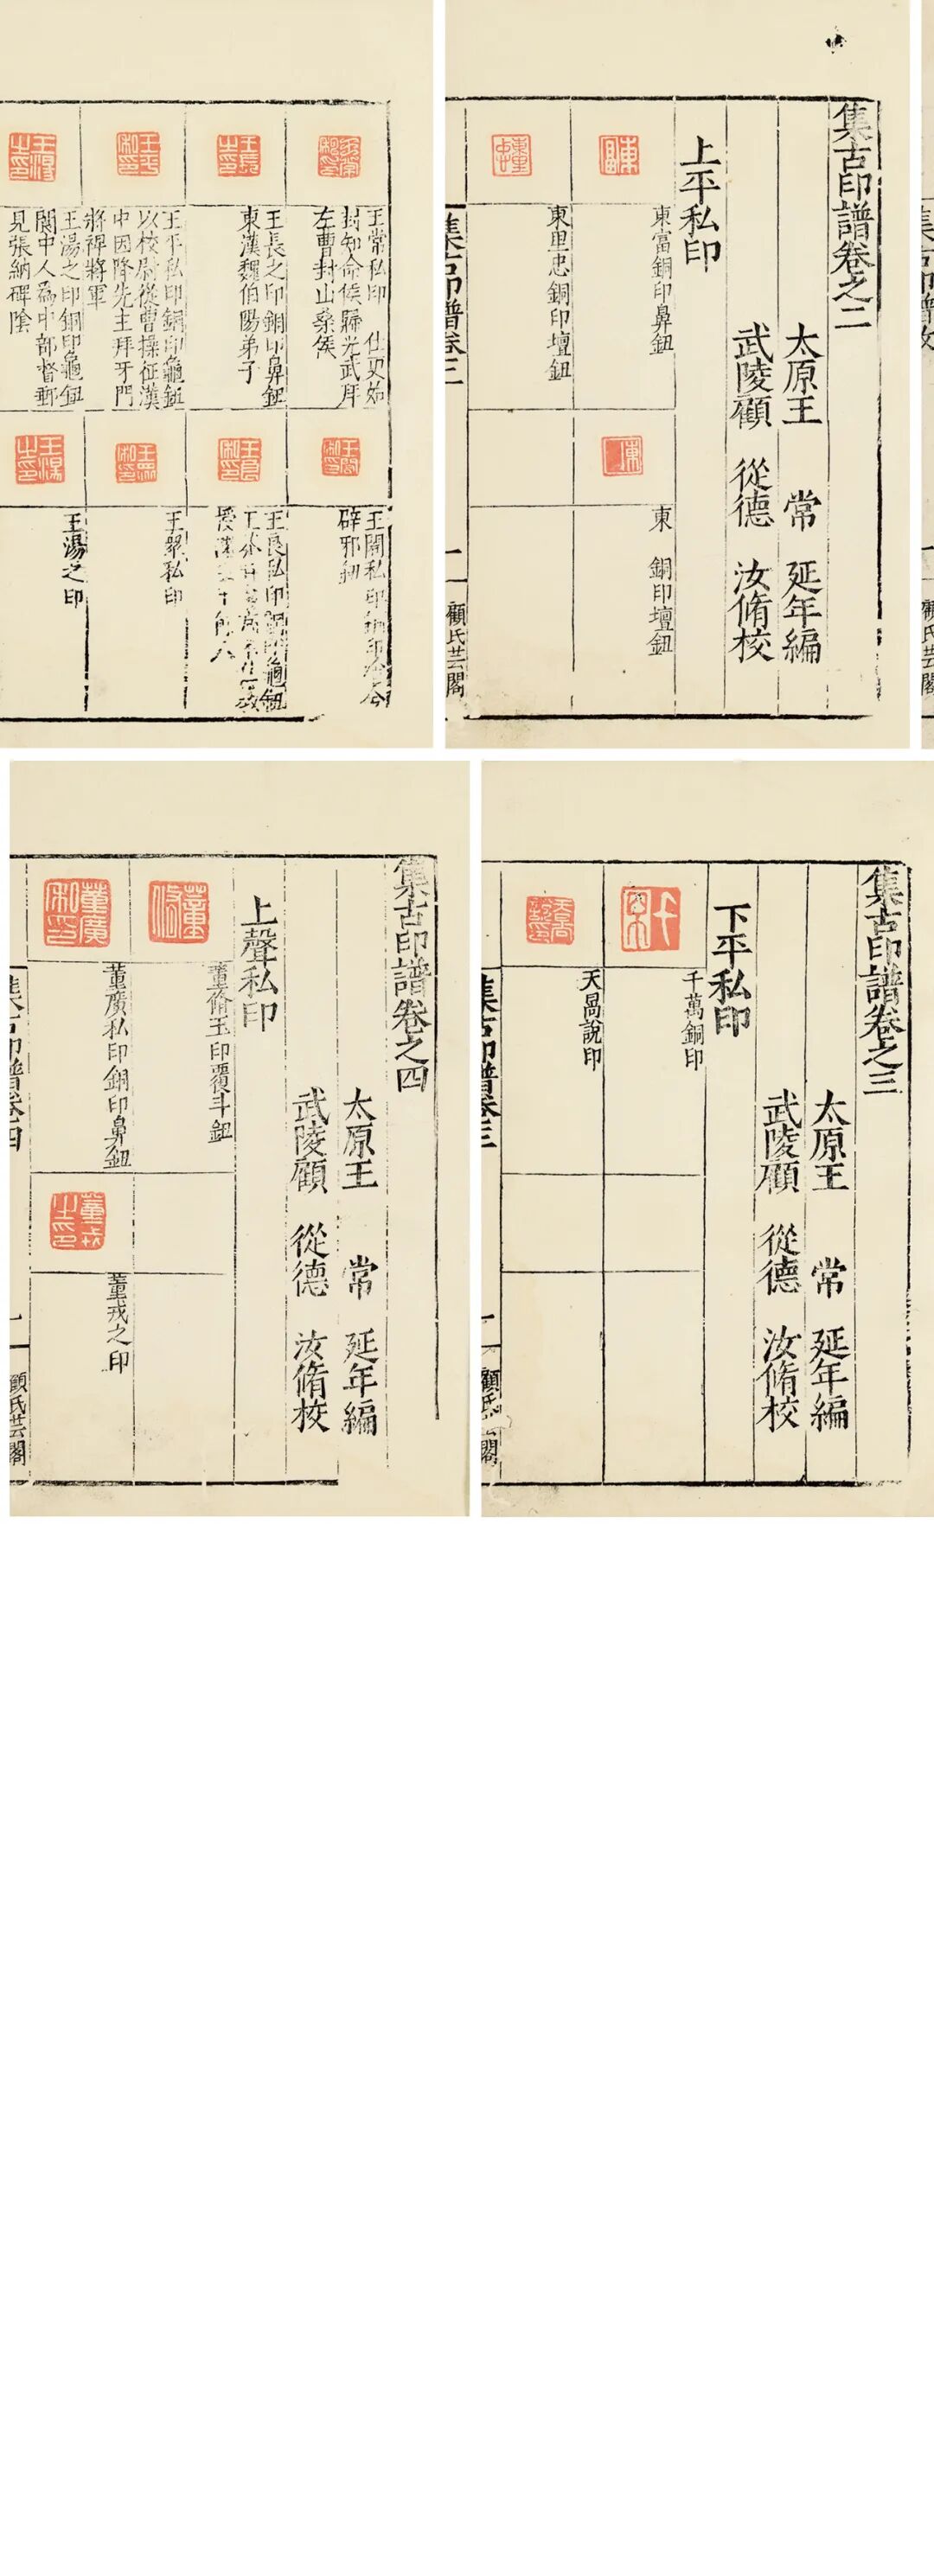 集古印譜卷之二
太原王常延年編
武陵顧從德汝脩校
上平私印
東富銅印鼻鈕
東銅印壇鈕
東里忠銅印壇鈕
顧氏芸閣
王常私印
封知命侯歸光武拜
左曹封山桑侯
王長之印銅印鼻鈕
東漢魏伯陽弟子
王平私印銅印龜鈕
以校尉從曹操征漢
中因降先主拜牙門
將裨將軍
王湯之印銅印龜鈕
閬中人為中部督郵
見張納碑陰
王閎私印
辟邪鈕
王良私印
王翠私印
王湯之印
集古印譜卷之三
太原王常延年編
武陵顧從德汝脩校
下平私印
千萬銅印
天暠說印
集古印譜卷三
集古印譜卷之四
太原王常延年編
武陵顧從德汝脩校
上聲私印
董脩玉印覆斗鈕
董廣私印銅印鼻鈕
董戎之印
集古印譜卷四
顧氏芸閣